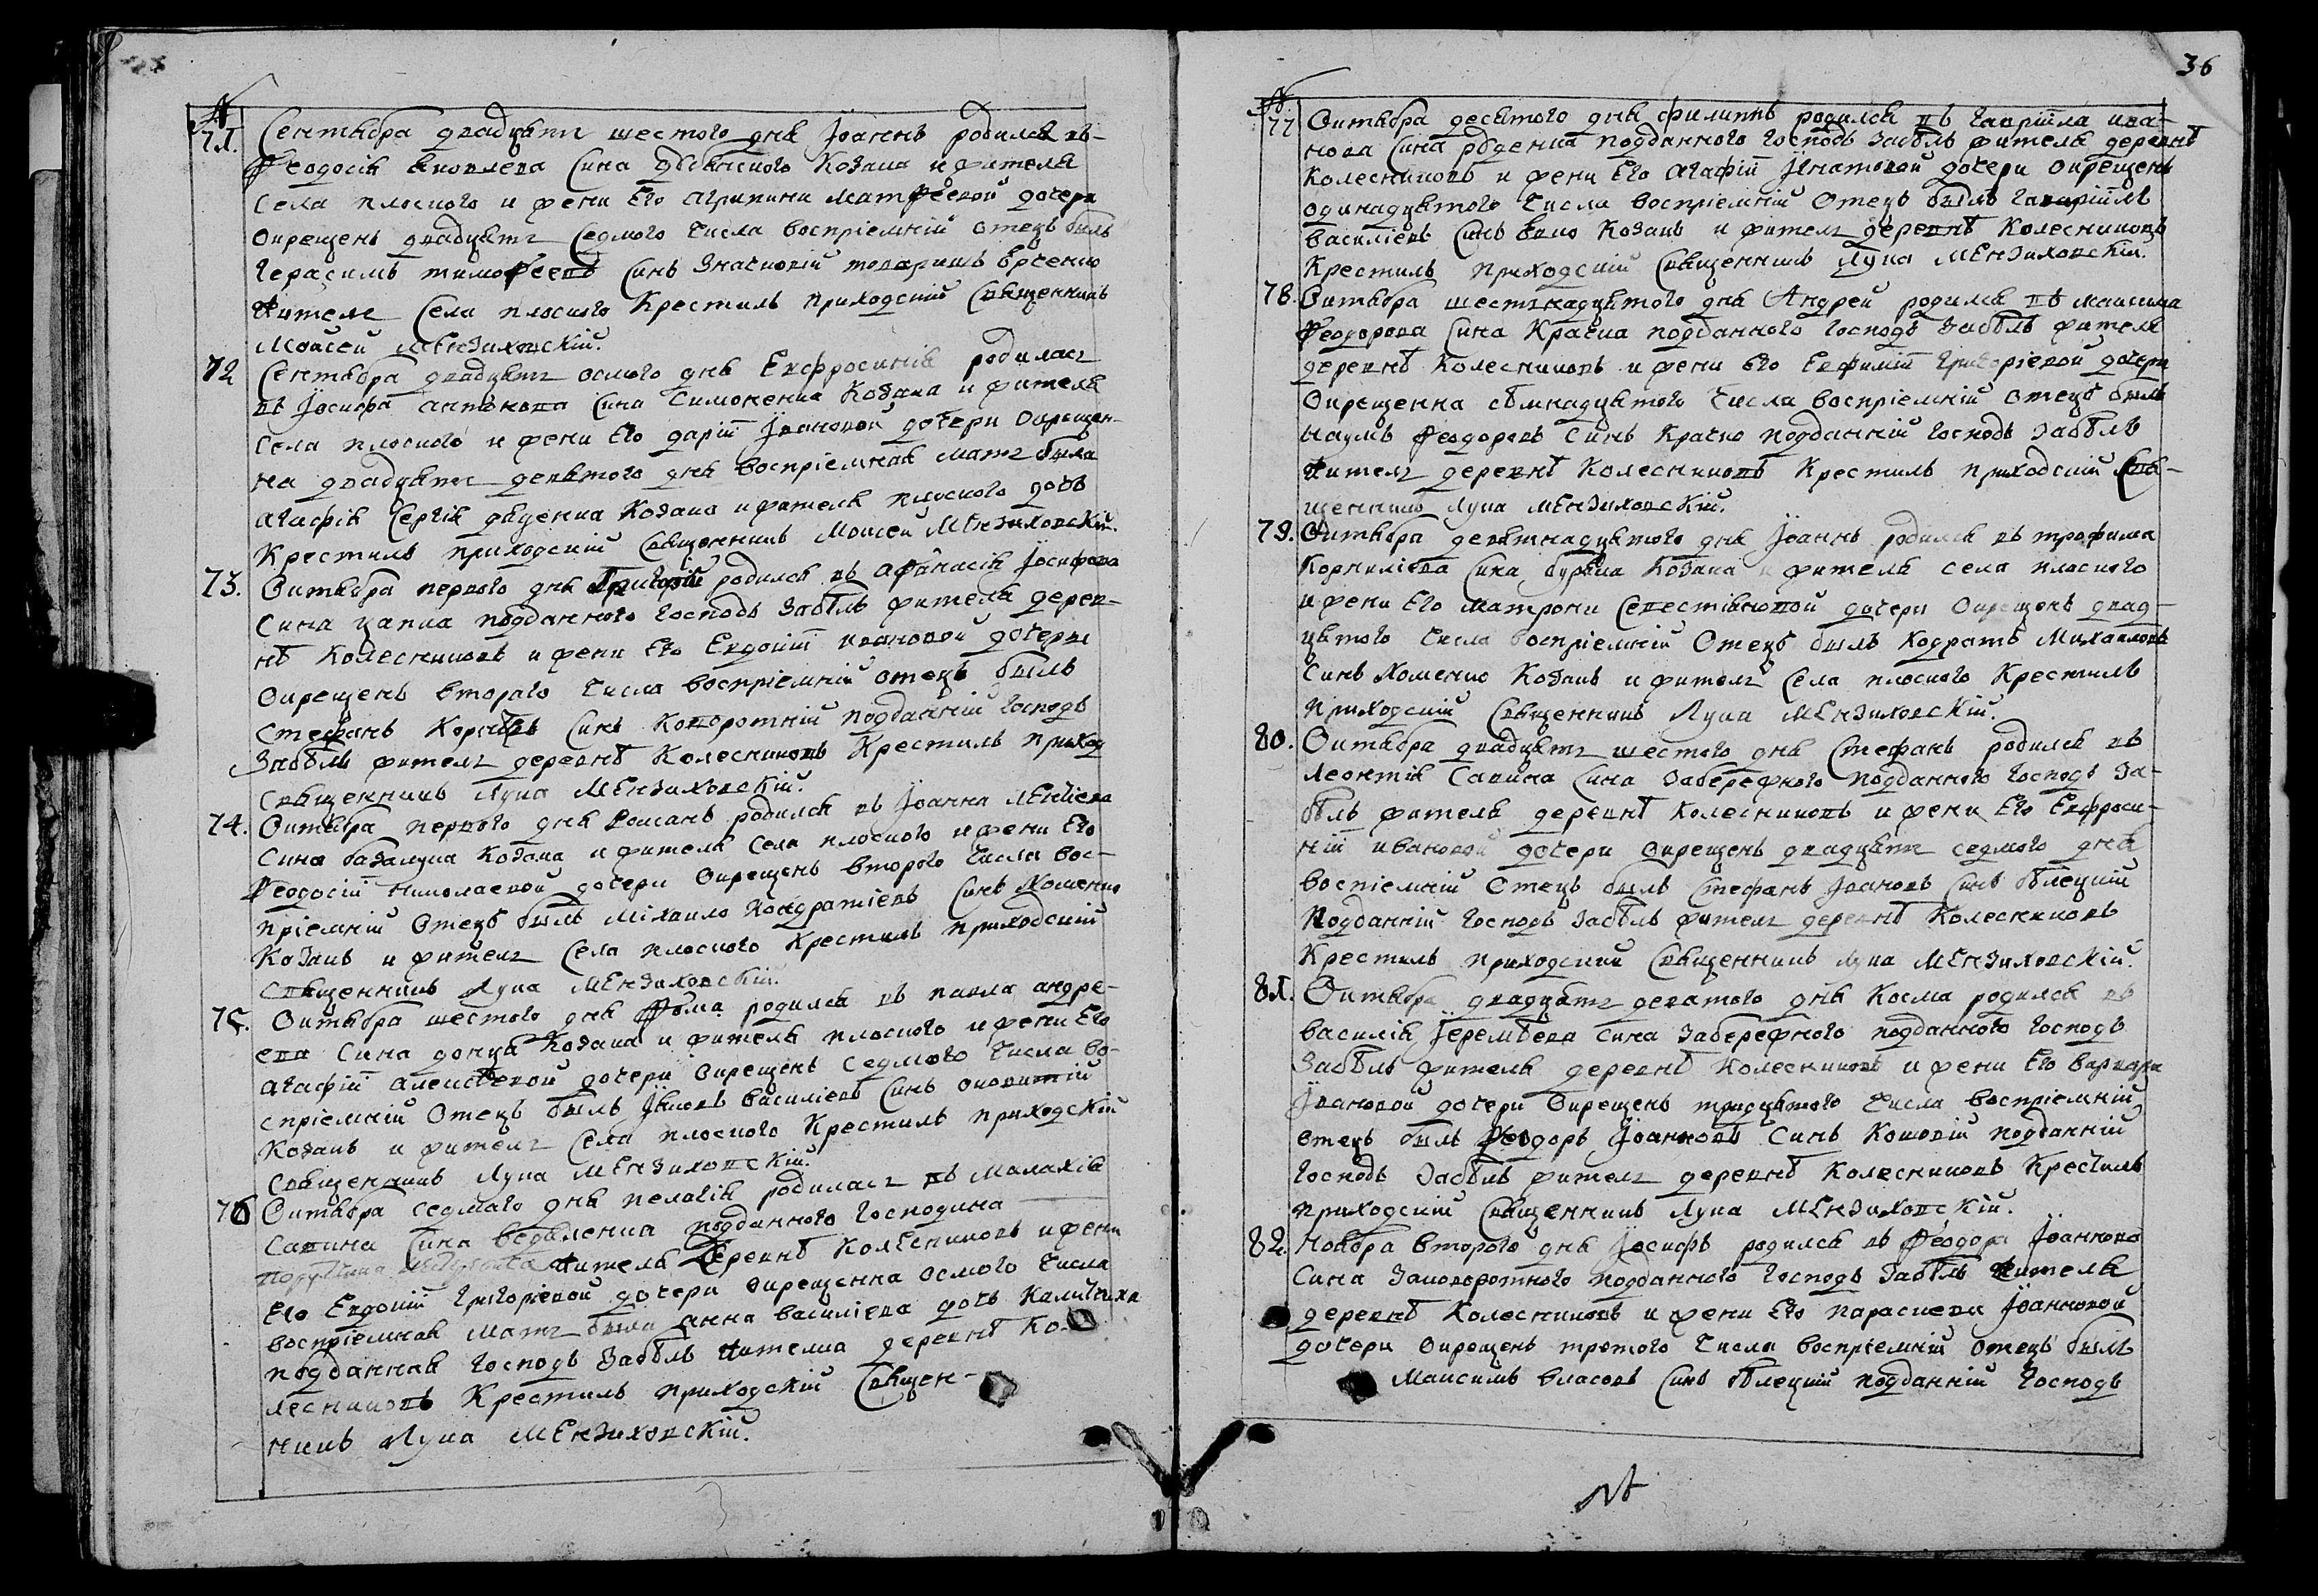 №
71. Сентября двадцять шестого дня Іоаннъ родился въ
Феодосія Яковлева сина козака и жителя
села плоского и жени его Агрипини Матфеевой дочери
окрещенъ двадцять седмого числа воспріемній отецъ былъ
Герасимъ тимофеевъ синъ Значковій товаришъ
житель села плоского Крестилъ приходскій священникъ
Моисей Мензиховскій.
72 Сентября двадцять осмого дня Евфросинія родилась
въ Іосифа антонова сина Симоненка Козака и жителя
села плоского и жени Его даріи Івановой дочери окрещен-
на двадцять девятого дня воспріемная мать была
агафія Сергія дяденка Козака и жителя плоского дочь
Крестилъ приходскій священникъ Моисей Мензиховскій.
73. Октября первого дня Григорій родился въ Афанасія Іосифова
сина цапка подданного господъ Забѣлъ жителя дерев-
нѣ Колесниковъ и жени Его Евдокіи ивановой дочеры
окрещенъ второго числа воспріемній отецъ былъ
Стефанъ синъ подданній господъ
Забѣлъ житель деревнѣ Колесниковъ Крестилъ приход
священникъ Лука Мензиховскій.
74. Октября первого дня Романъ родился въ Іоанна
сина базалука Козака и жителя села плоского и жени Его
Феодосіи Николаевой дочери окрещенъ второго числа вос-
пріемній отецъ былъ Міхаило Кондратіевъ синъ Хоменко
Козакъ и житель села плоского Крестилъ приходскій
священникъ Лука Мензиховскій.
75. Октября шестого дня Фома родился въ павла андре-
ева сина донця Козака и жителя плоского и жени Его
агафіи алексѣевой дочери окрещенъ седмого числа во-
спріемній отецъ былъ Яковъ Василіевъ синъ
Козакъ и житель села плоского Крестилъ приходскій
священникъ Лука Мензиховскій.
76 Октября седмаго дня пелагія родилась въ Малахія
савина сина подданного господина
порутчика жителя деревнѣ Колесниковъ и жени
Его Евдокіи Григоріевой дочери окрещенна осмого числа
воспріемная мать была анна василіева дочь
подданная господъ Забѣлъ жителка деревнѣ Ко-
лесниковъ Крестилъ приходскій священ-
никъ Лука Мензиховскій.
36
№
77 Октября десятого дня филиппъ родился въ гавріила ива-
нова сина подданного господъ Забѣлъ жителя деревнѣ
Колесниковъ и жени Его агафіи Ігнатовой дочери окрещенъ
одинадцятого числа воспріемній отецъ былъ гавріилъ
василіевъ синъ Козакъ и житель деревнѣ Колесниковъ
Крестилъ приходскій священникъ Лука Мензиховскій.
78. Октября шестнадцятого дня Андрей родился въ максима
Феодорова сина подданного господъ Забѣлъ жителя
деревнѣ Колесниковъ и жени его Евфиміи Григоріевой дочери
Окрещенна сѣмнадцятого числа воспріемній отецъ былъ
наумъ Феодоровъ синъ подданній господъ Забѣлъ
житель деревнѣ Колесниковъ Крестилъ приходскій свя-
щенникъ Лука Мензиховскій.
79. Октября девятнадцятого дня Іоаннъ родился въ трофима
Корниліева сина буряка Козака и жителя села плоского
и жени Его матрони дочери окрещенъ двад-
цятого числа воспріемній отецъ былъ Кодратъ Михаиловъ
синъ Хоменко Козакъ и житель села плоского Крестилъ
приходскій священникъ Лука Мензиховскій.
80. Октября двадцять шестого дня Стефанъ родился въ
Леонтія Савина сина Забережного подданного господъ За-
бѣлъ жителя деревнѣ Колесниковъ и жени Его Евфроси-
ніи ивановой дочери окрещенъ двадцять седмого дня
воспіемній Отецъ былъ Стефанъ Івановъ синъ бѣлецкій
подданній господъ Забѣлъ житель деревнѣ Колесниковъ
Крестилъ приходскій священникъ Лука Мензиховскій.
81. Октября двадцять деватого дня Косма родился въ
василія Іеремѣева сина Забережного подданного господъ
Забѣлъ жителя деревнѣ Колесниковъ и жени Его варвари
Івановой дочери окрещенъ тридцятого числа воспріемній
отецъ былъ Феодоръ Іоанновъ синъ подданній
господъ Забѣлъ житель деревнѣ Колесниковъ Крестилъ
приходскій священникъ Лука Мензиховскій.
82. Ноября второго дня Іосифъ родился въ Феодора Іоаннова
сина Заковоротного подданного господъ Забѣлъ жителя
деревнѣ Колесниковъ и жени Его параскеви Іоанновой
дочери окрещенъ третого числа воспріемній отецъ былъ
Максимъ власовъ синъ бѣлецкій подданній господъ